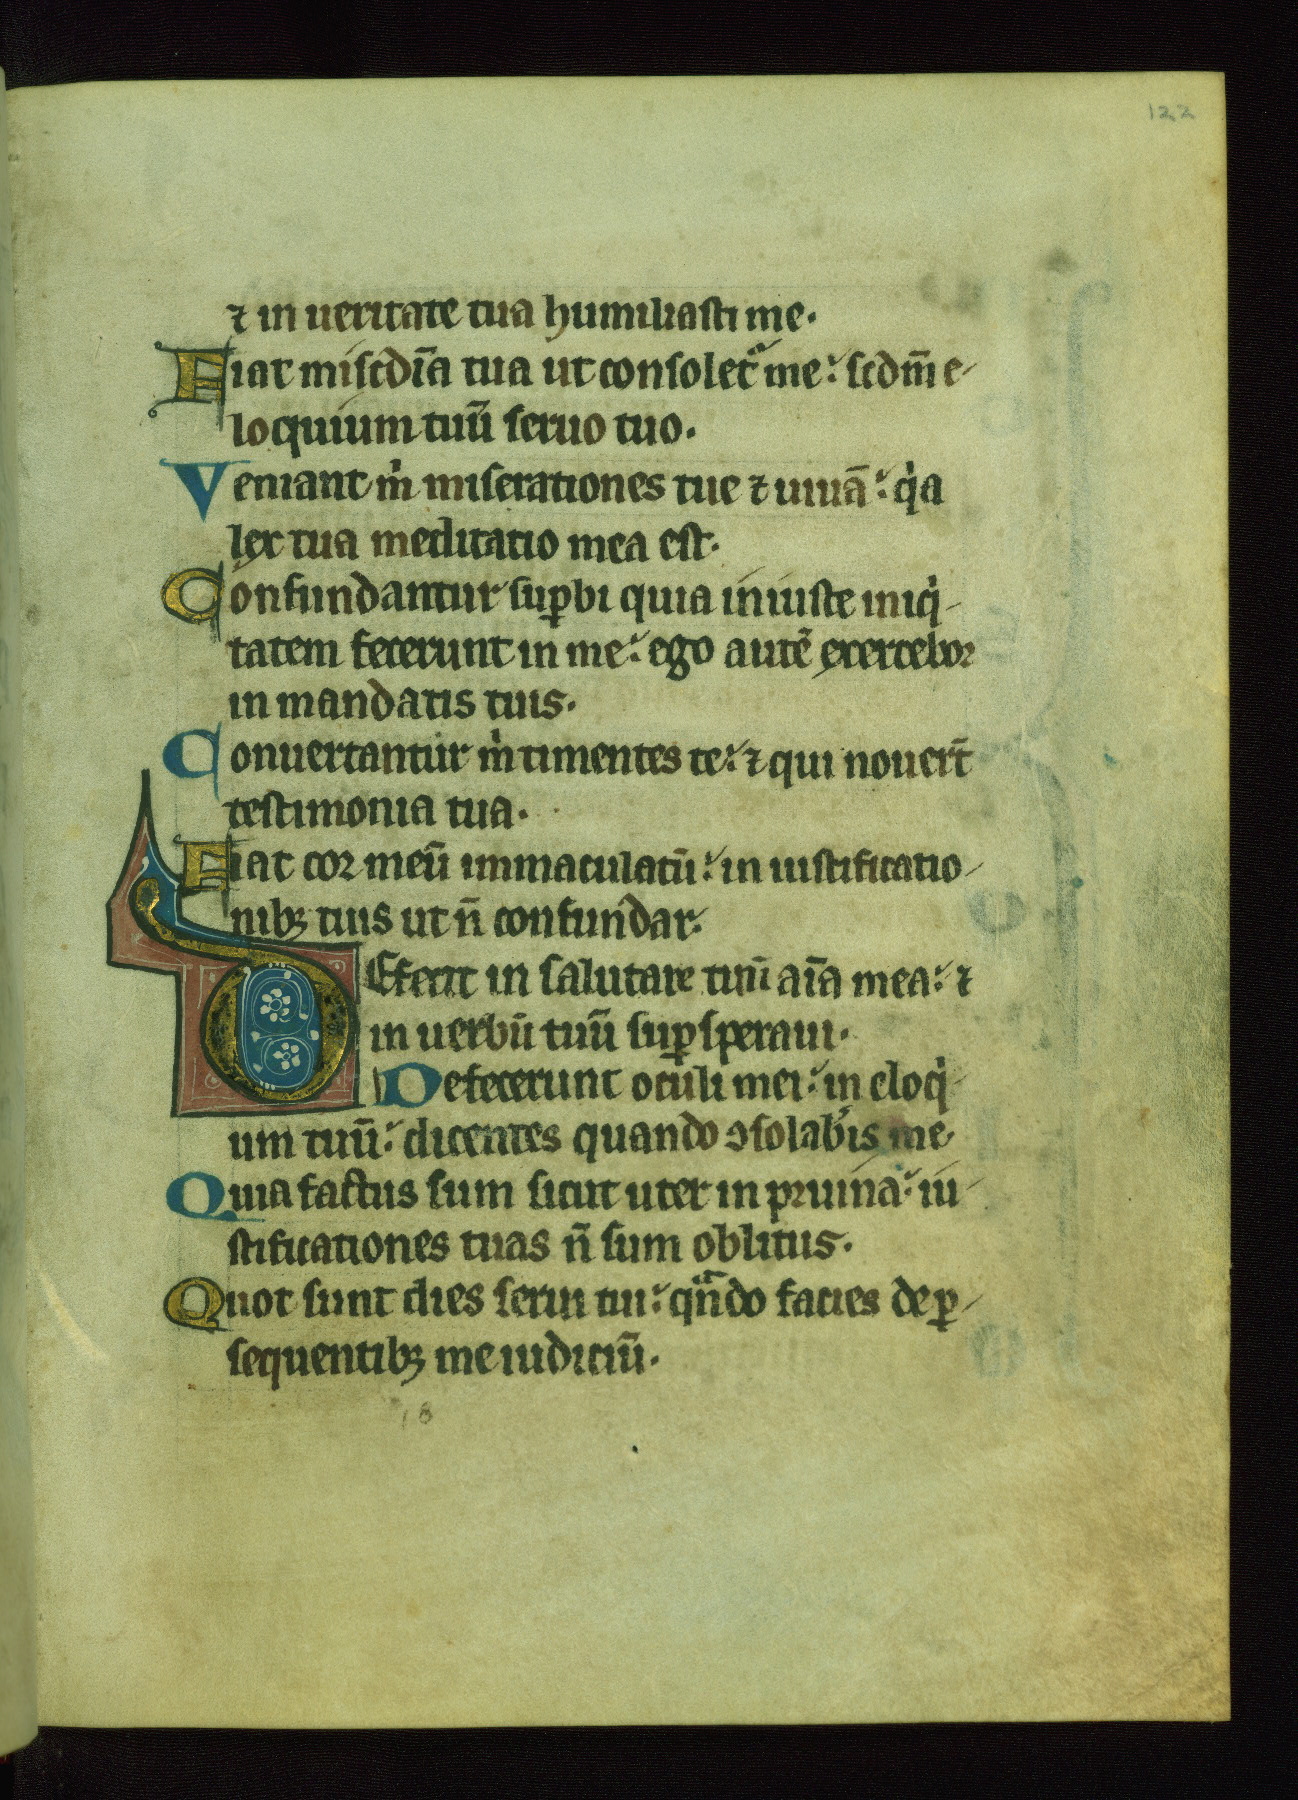 122
⁊ in ueritate tua humiliasti me.
Fiat misc̄dīa tua ut consoletᷓ me: scdm̄ e-
loquium tuū seruo tuo.
Veniant m̄ miserationes tue ⁊ uiuā: qͥa
lex tua meditatio mea est.
Confundantur suꝑbi quia iniuste iniqͥ-
tatem fecerunt in me: ego autē exercebor
in mandatis tuis.
Conuertantur m̄ timentes te: ⁊ qui nouert̄
testimonia tua.
Fiat cor meū immaculatū: in iustificatio-
nibꝫ tuis ut n̄ confundar.
DEfecit in salutare tuū aīa mea: ⁊
in uerbū tuū suꝑsperaui.
Defecerunt oculi mei: in eloqͥ-
um tuū: dicentes quando ꝯsolab̄is me
Quia factus sum sicut uter in pruina: iu-
stificationes tuas n̄ sum oblitus.
Quot sunt dies serui tui: qᷓn̄do facies de ꝑ-
sequentibꝫ me iudiciū.
18